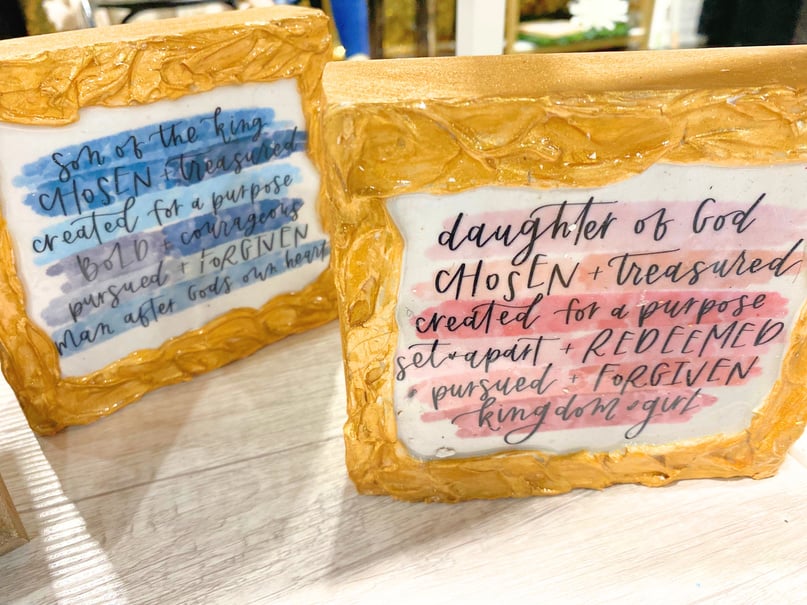 son of the king
CHOSEN + treasured
created for a purpose
BOLD + courageous
pursued + FORGIVEN
man after Gods own heart
daughter of God
CHOSEN + treasured
created for a purpose
set apart + REDEEMED
pursued + FORGIVEN
kingdom girl